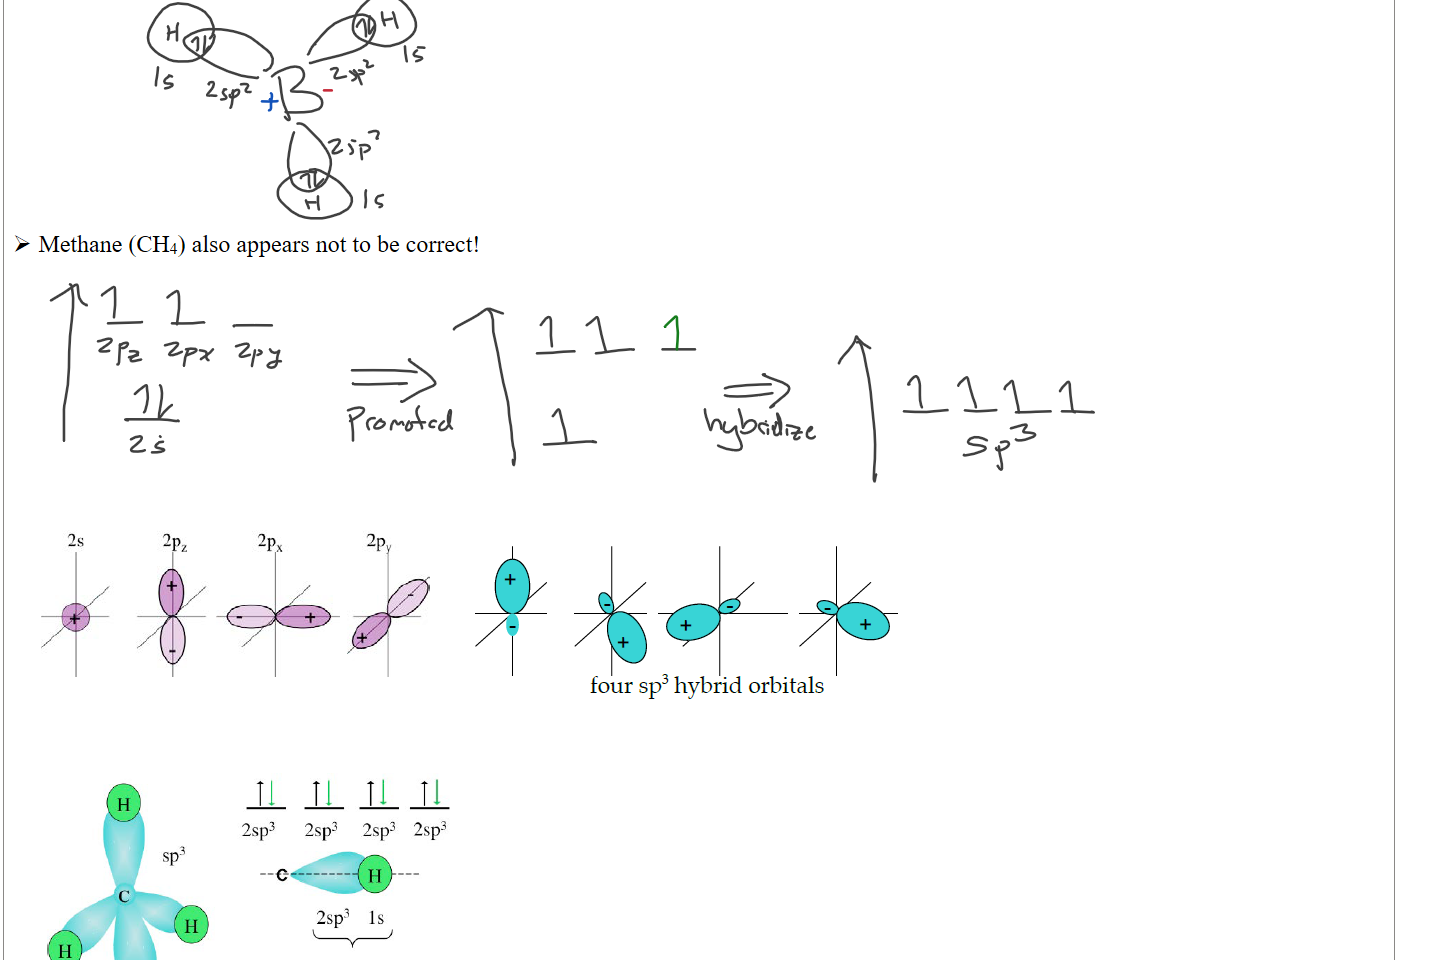 H 1L 1L H
1s 2sp² 2sp² 1s
+ B -
2sp²
1L
H 1s
➢ Methane (CH₄) also appears not to be correct!
1 1
2pz 2px 2py
1L
2s
⇒
Promoted
1 1 1
1
⇒
hybridize
1 1 1 1
sp³
2s 2pz 2px 2py
+ + - - + - + + - - + + - - +
four sp³ hybrid orbitals
H
sp³
C
H
H
↑↓ ↑↓ ↑↓ ↑↓
2sp³ 2sp³ 2sp³ 2sp³
C H
2sp³ 1s